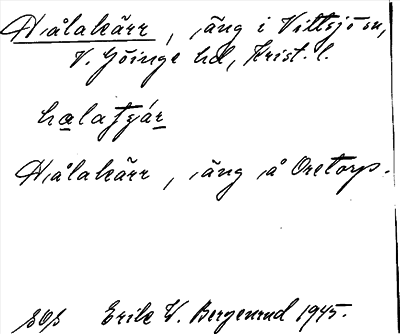 Hålakärr, äng i Vittsjö sn,
V. Göinge hd, Krist. l.
hælaʈʂár
Hålakärr, äng å Oretorp.
SOS Erik W. Bergenrud 1945.